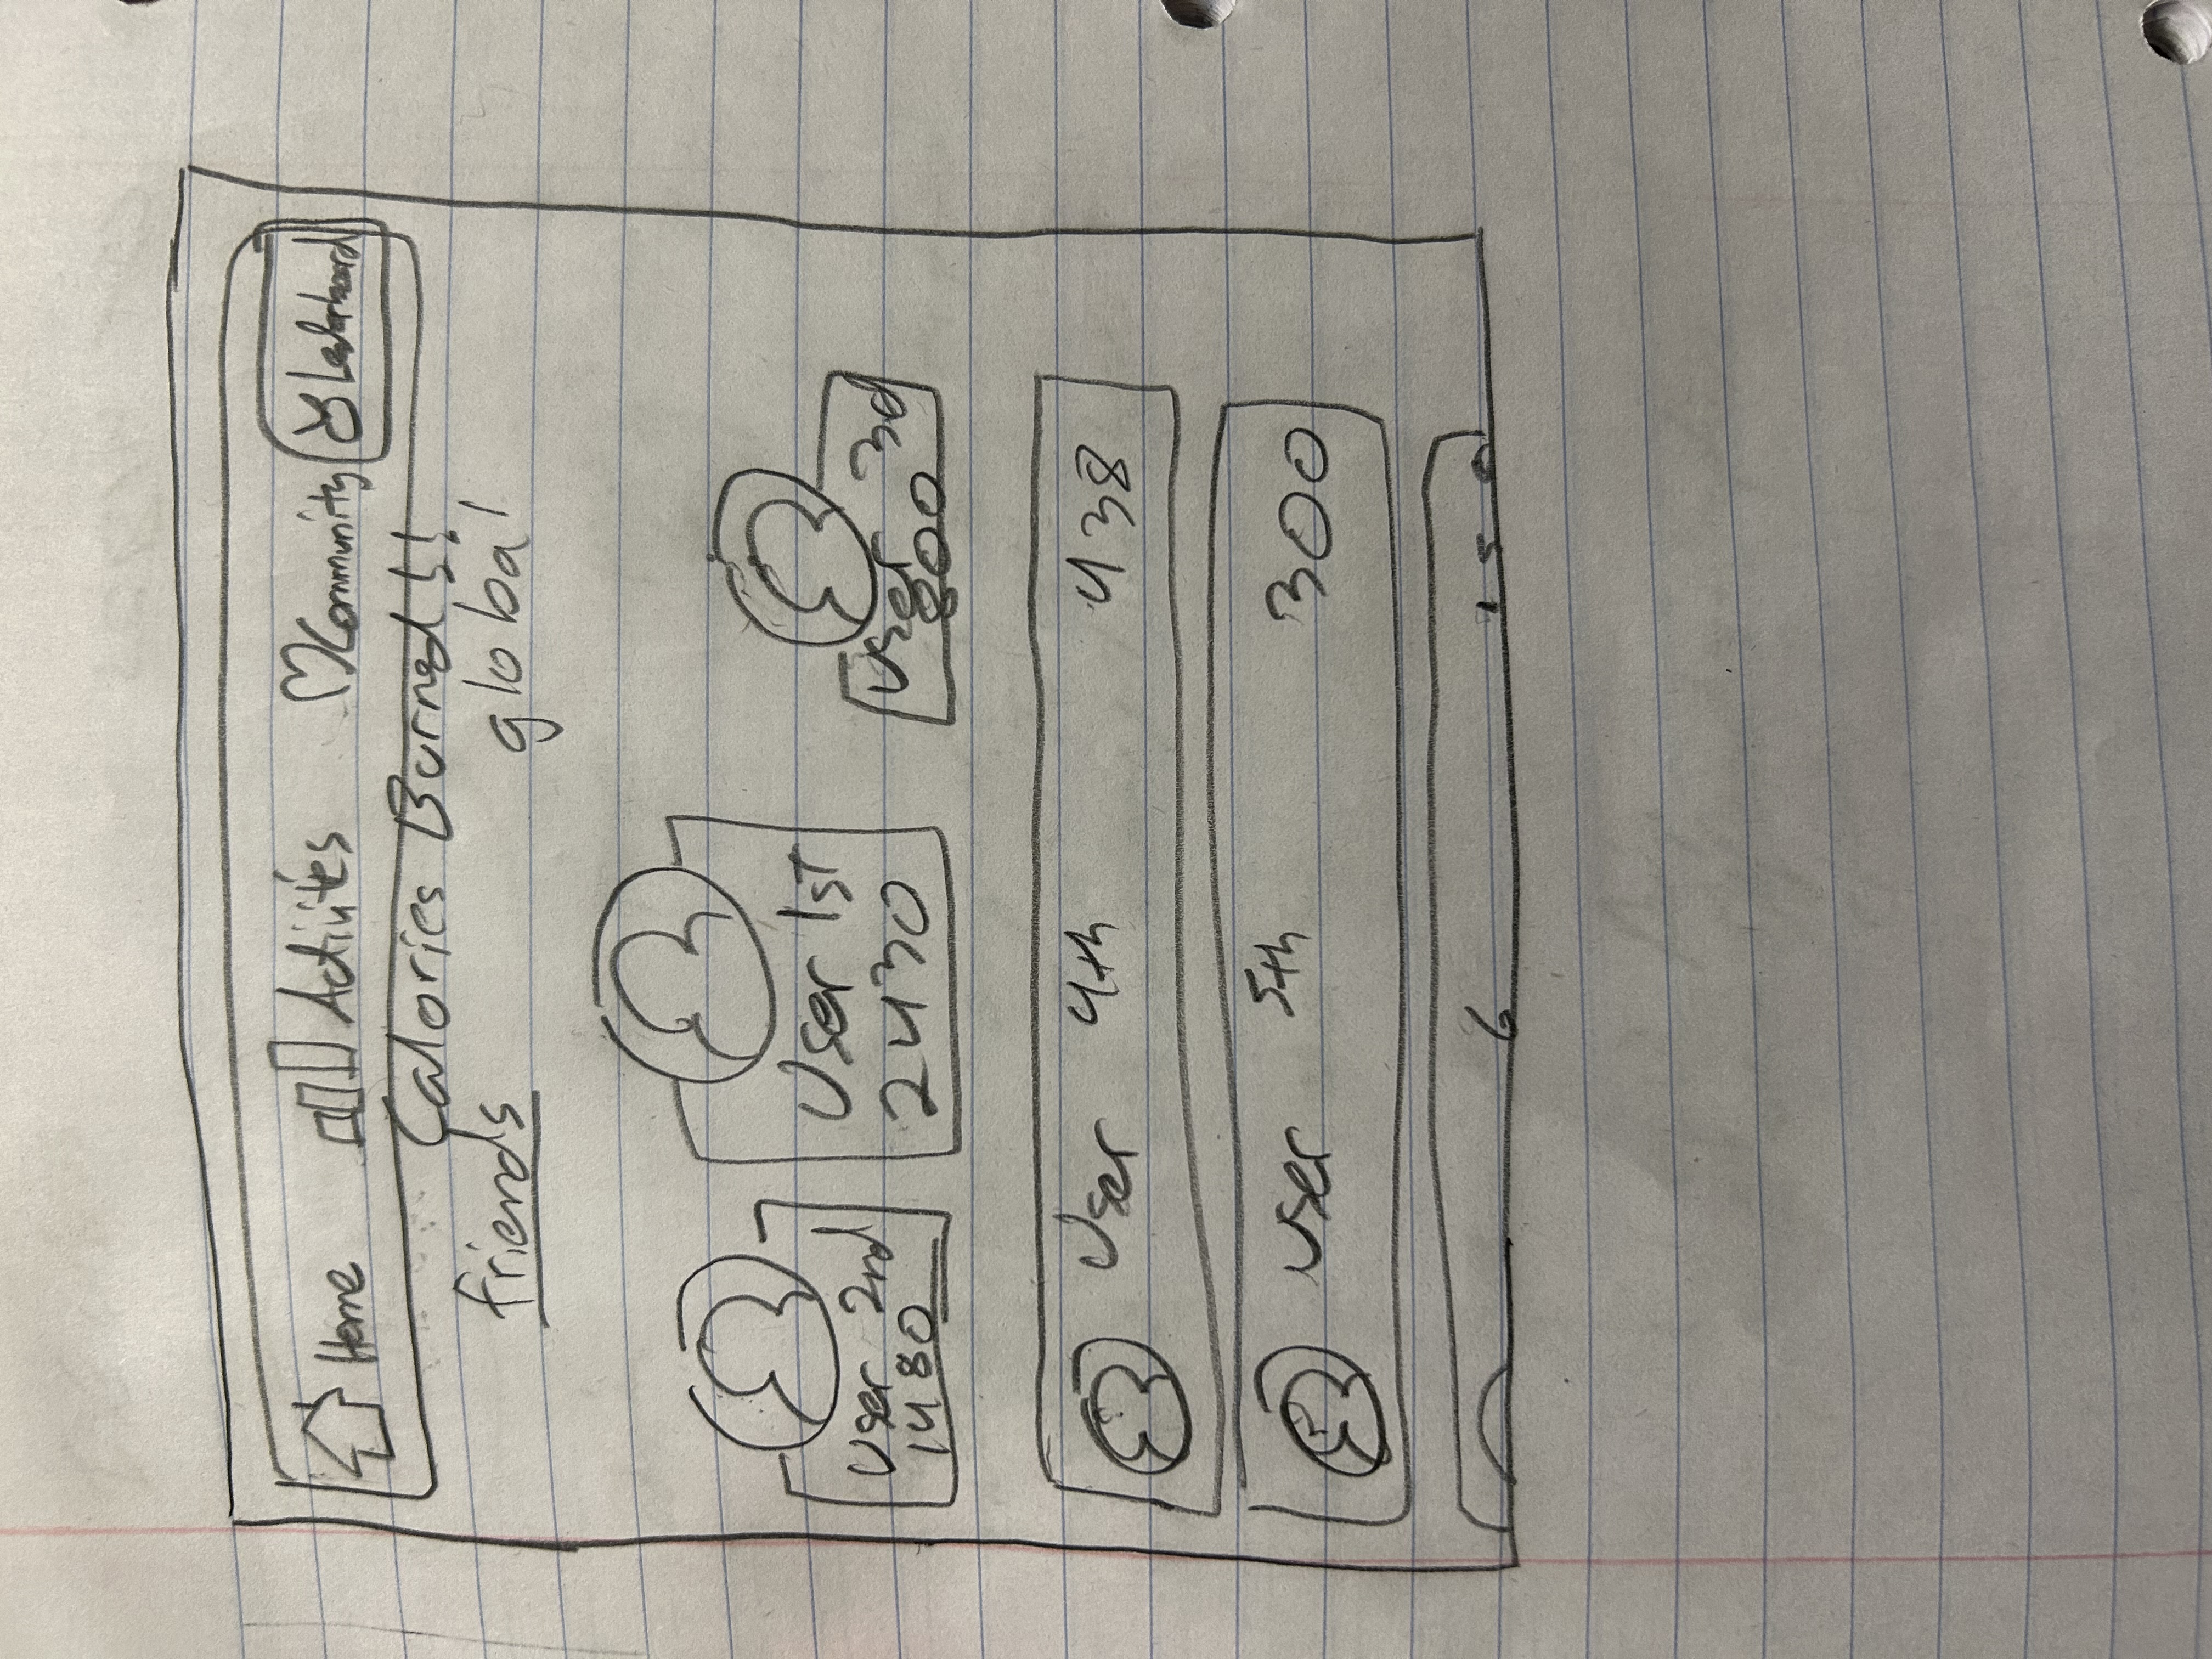 Home Activites Community Leaderboard
Calories Burned!!
friends global
User 1st
2430
User 2nd
1480
User 3d
800
User 4th 438
User 5th 300
6 150